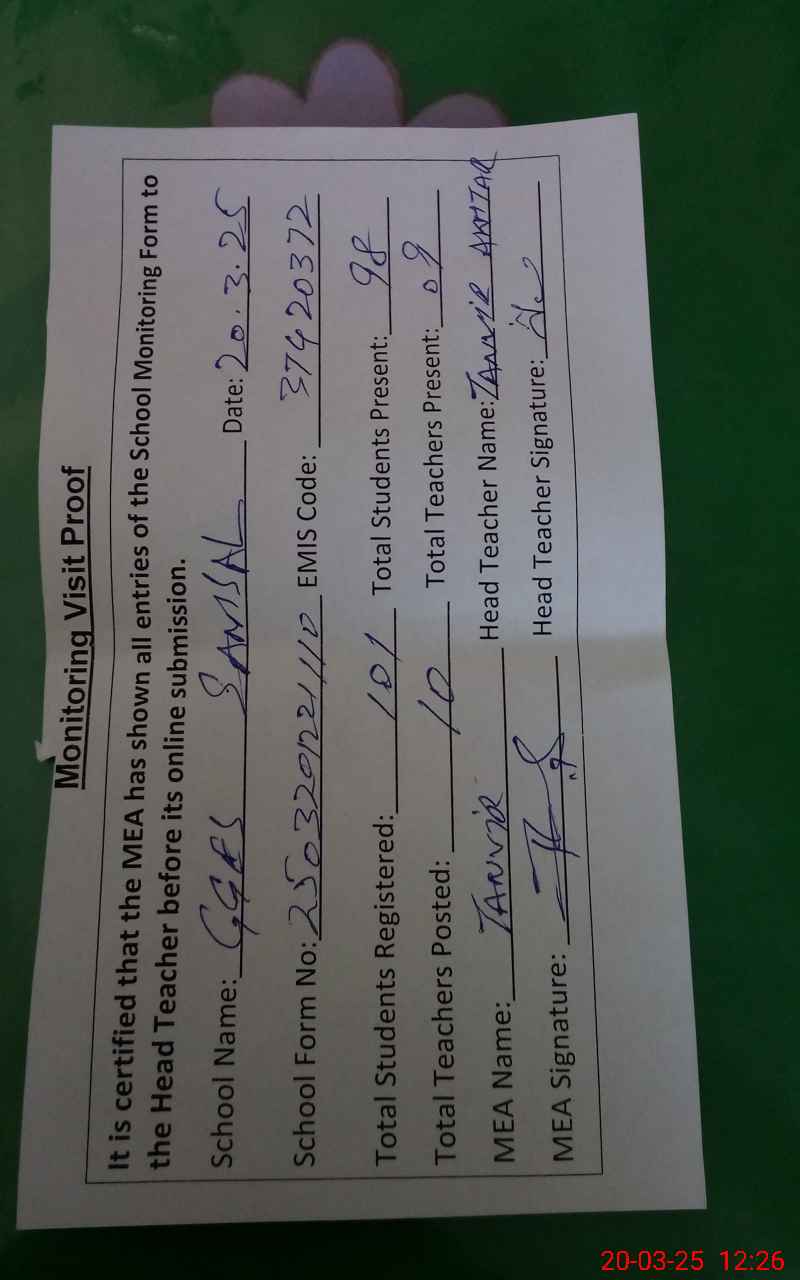 Monitoring Visit Proof
It is certified that the MEA has shown all entries of the School Monitoring Form to
the Head Teacher before its online submission.
School Name: GGES SANISAL Date: 20.3.25
School Form No: EMIS Code: 37420372
Total Students Registered: 101 Total Students Present: 98
Total Teachers Posted: 10 Total Teachers Present: 09
MEA Name: TANVIR Head Teacher Name: TANVIR AKHTAR
MEA Signature: Head Teacher Signature:
20-03-25 12:26